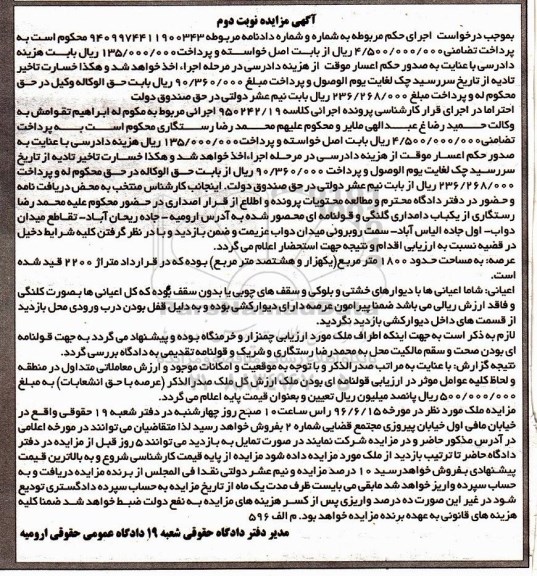 آگهی مزایده نوبت دوم
بموجب درخواست اجرای حکم مربوطه به شماره و شماره دادنامه مربوطه ۹۴۰۹۹۷۴۴۱۱۹۰۰۳۴۳ محکوم است به
پرداخت تضامنی ۴/۵۰۰/۰۰۰/۰۰۰ ریال از بابت اصل خواسته و پرداخت ۱۳۵/۰۰۰/۰۰۰ ریال بابت هزینه
دادرسی با عنایت به صدور حکم اعسار موقت از هزینه دادرسی در مرحله اجرا، اخذ خواهد شد و هکذا خسارت تاخیر
تادیه از تاریخ سررسید چک لغایت یوم الوصول و پرداخت مبلغ ۹۰/۳۶۰/۰۰۰ ریال بابت حق الوکاله وکیل در حق
محکوم له و پرداخت مبلغ ۲۳۶/۲۶۸/۰۰۰ ریال بابت نیم عشر دولتی در حق صندوق دولت
احتراما در اجرای قرار کارشناسی پرونده اجرائی کلاسه ۹۵۰۲۴۲/۱۹ اجرائی مربوط به مکوم له ابراهیم تقوامش به
وکالت حمید رضاغ عبدالهی ملایر و محکوم علیهم محمد رضا رستگاری محکوم است به پرداخت
تضامنی ۴/۵۰۰/۰۰۰/۰۰۰ ریال بابت اصل خواسته و پرداخت ۱۳۵/۰۰۰/۰۰۰ ریال هزینه دادرسی با عنایت به
صدور حکم اعسار موقت از هزینه دادرسی در مرحله اجرا، اخذ خواهد شد و هکذا خسارت تاخیر تادیه از تاریخ
سررسید چک لغایت یوم الوصول و پرداخت ۹۰/۳۶۰/۰۰۰ ریال از بابت حق الوکاله در حق محکوم له و پرداخت
۲۳۶/۲۶۸/۰۰۰ ریال از بابت نیم عشر دولتی در حق صندوق دولت. اینجانب کارشناس منتخب به محض دریافت نامه
و حضور در دفتر دادگاه محترم و مطالعه محتویات پرونده و اطلاع از قرار اصداری در حضور محکوم علیه محمد رضا
رستگاری از یکباب دامداری گلنگی و قولنامه ای محصور شده به آدرس ارومیه - جاده ریحان آباد- تقاطع میدان
دواب- اول جاده الیاس آباد- سمت روبرونی میدان دواب عزیمت و ضمن بازدید و با در نظر گرفتن کلیه شرایط دخیل
در قضیه نسبت به ارزیابی اقدام و نتیجه جهت استحضار اعلام می گردد.
عرصه: به مساحت حدود ۱۸۰۰ متر مربع (یکهزار و هشتصد متر مربع) بوده که در قرارداد متراژ ۲۲۰۰ قید شده
است.
اعیانی: شاما اعیانی ها با دیوارهای خشتی و بلوکی و سقف های چوبی یا بدون سقف بوده که کل اعیانی ها بصورت کلنگی
و فاقد ارزش ریالی می باشد ضمنا پیرامون عرصه دارای دیوارکشی بوده و به دلیل قفل بودن درب ورودی محل بازدید
از قسمت های داخل دیوارکشی بازدید نگردید.
لازم به ذکر است به جهت اینکه اطراف ملک مورد ارزیابی چمنزار و خرمنگاه بوده و پیشنهاد می گردد به جهت قولنامه
ای بودن صحت و سقم مالکیت محل به محمدرضا رستگاری و شریک و قولنامه تقدیمی به دادگاه بررسی گردد.
نتیجه گزارش: با عنایه به مراتب صدر الذکر و با توجه به موقعیت و امکانات موجود و ارزش معاملاتی متداول در منطقه
و لحاظ کلیه عوامل موثر در ارزیابی قولنامه ای بودن ملک ارزش کل ملک صدر الذکر (عرصه با حق انشعابات) به مبلغ
۵۰۰/۰۰۰/۰۰۰ ریال پانصد میلیون ریال تعیین و بعنوان قیمت پایه اعلام می گردد.
مزایده ملک مورد نظر در مورخه ۹۶/۶/۱۵ راس ساعت ۱۰ صبح روز چهارشنبه در دفتر شعبه ۱۹ حقوقی واقع در
خیابان مافی اول خیابان پیروزی مجتمع قضایی شماره ۲ بفروش خواهد رسید لذا متقاضیان می توانند در مورخه اعلامی
در آدرس مذکور حاضر و در مزایده شرکت نمایند در صورت تمایل به بازدید می توانند ۵ روز قبل از مزایده در دفتر
دادگاه حاضر تا ترتیب بازدید از ملک مورد مزایده داده شود مزایده از پایه قیمت کارشناسی شروع و به بالاترین قیمت
پیشنهادی بفروش خواهد رسید ۱۰ درصد مزایده و نیم عشر دولتی نقدا فی المجلس از برنده مزایده دریافت و به
حساب سپرده واریز خواهد شد مابقی می بایست ظرف مدت یک ماه از تاریخ مزایده به حساب سپرده دادگستری تودیع
شود در غیر این صورت ده درصد واریزی پس از کسر هزینه های مزایده به نفع دولت ضبط خواهد شد ضمنا کلیه
هزینه های قانونی به عهده برنده مزایده خواهد بود. م الف ۵۹۶
مدیر دفتر دادگاه حقوقی شعبه ۱۹ دادگاه عمومی حقوقی ارومیه